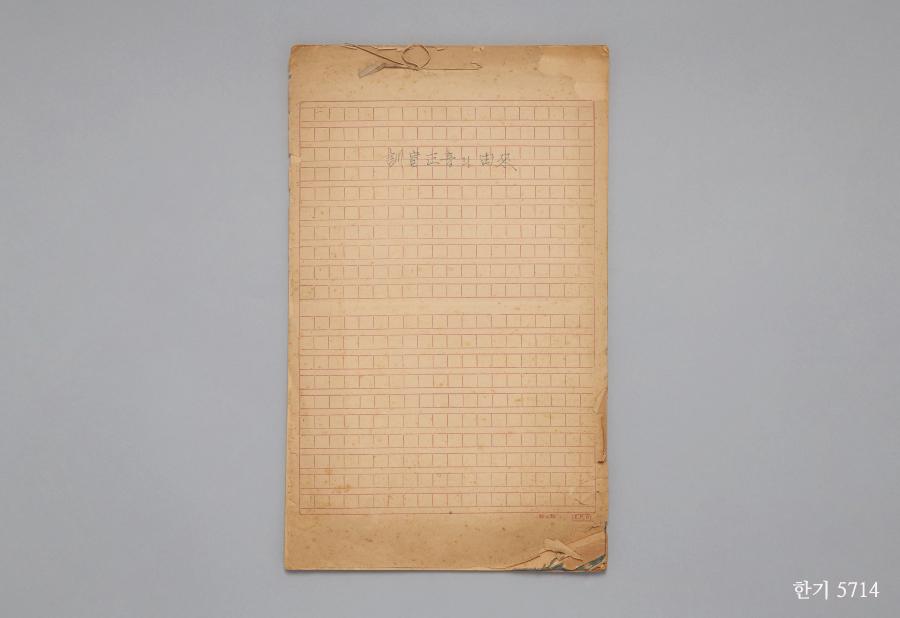 訓民正音의 由來
한기 5714